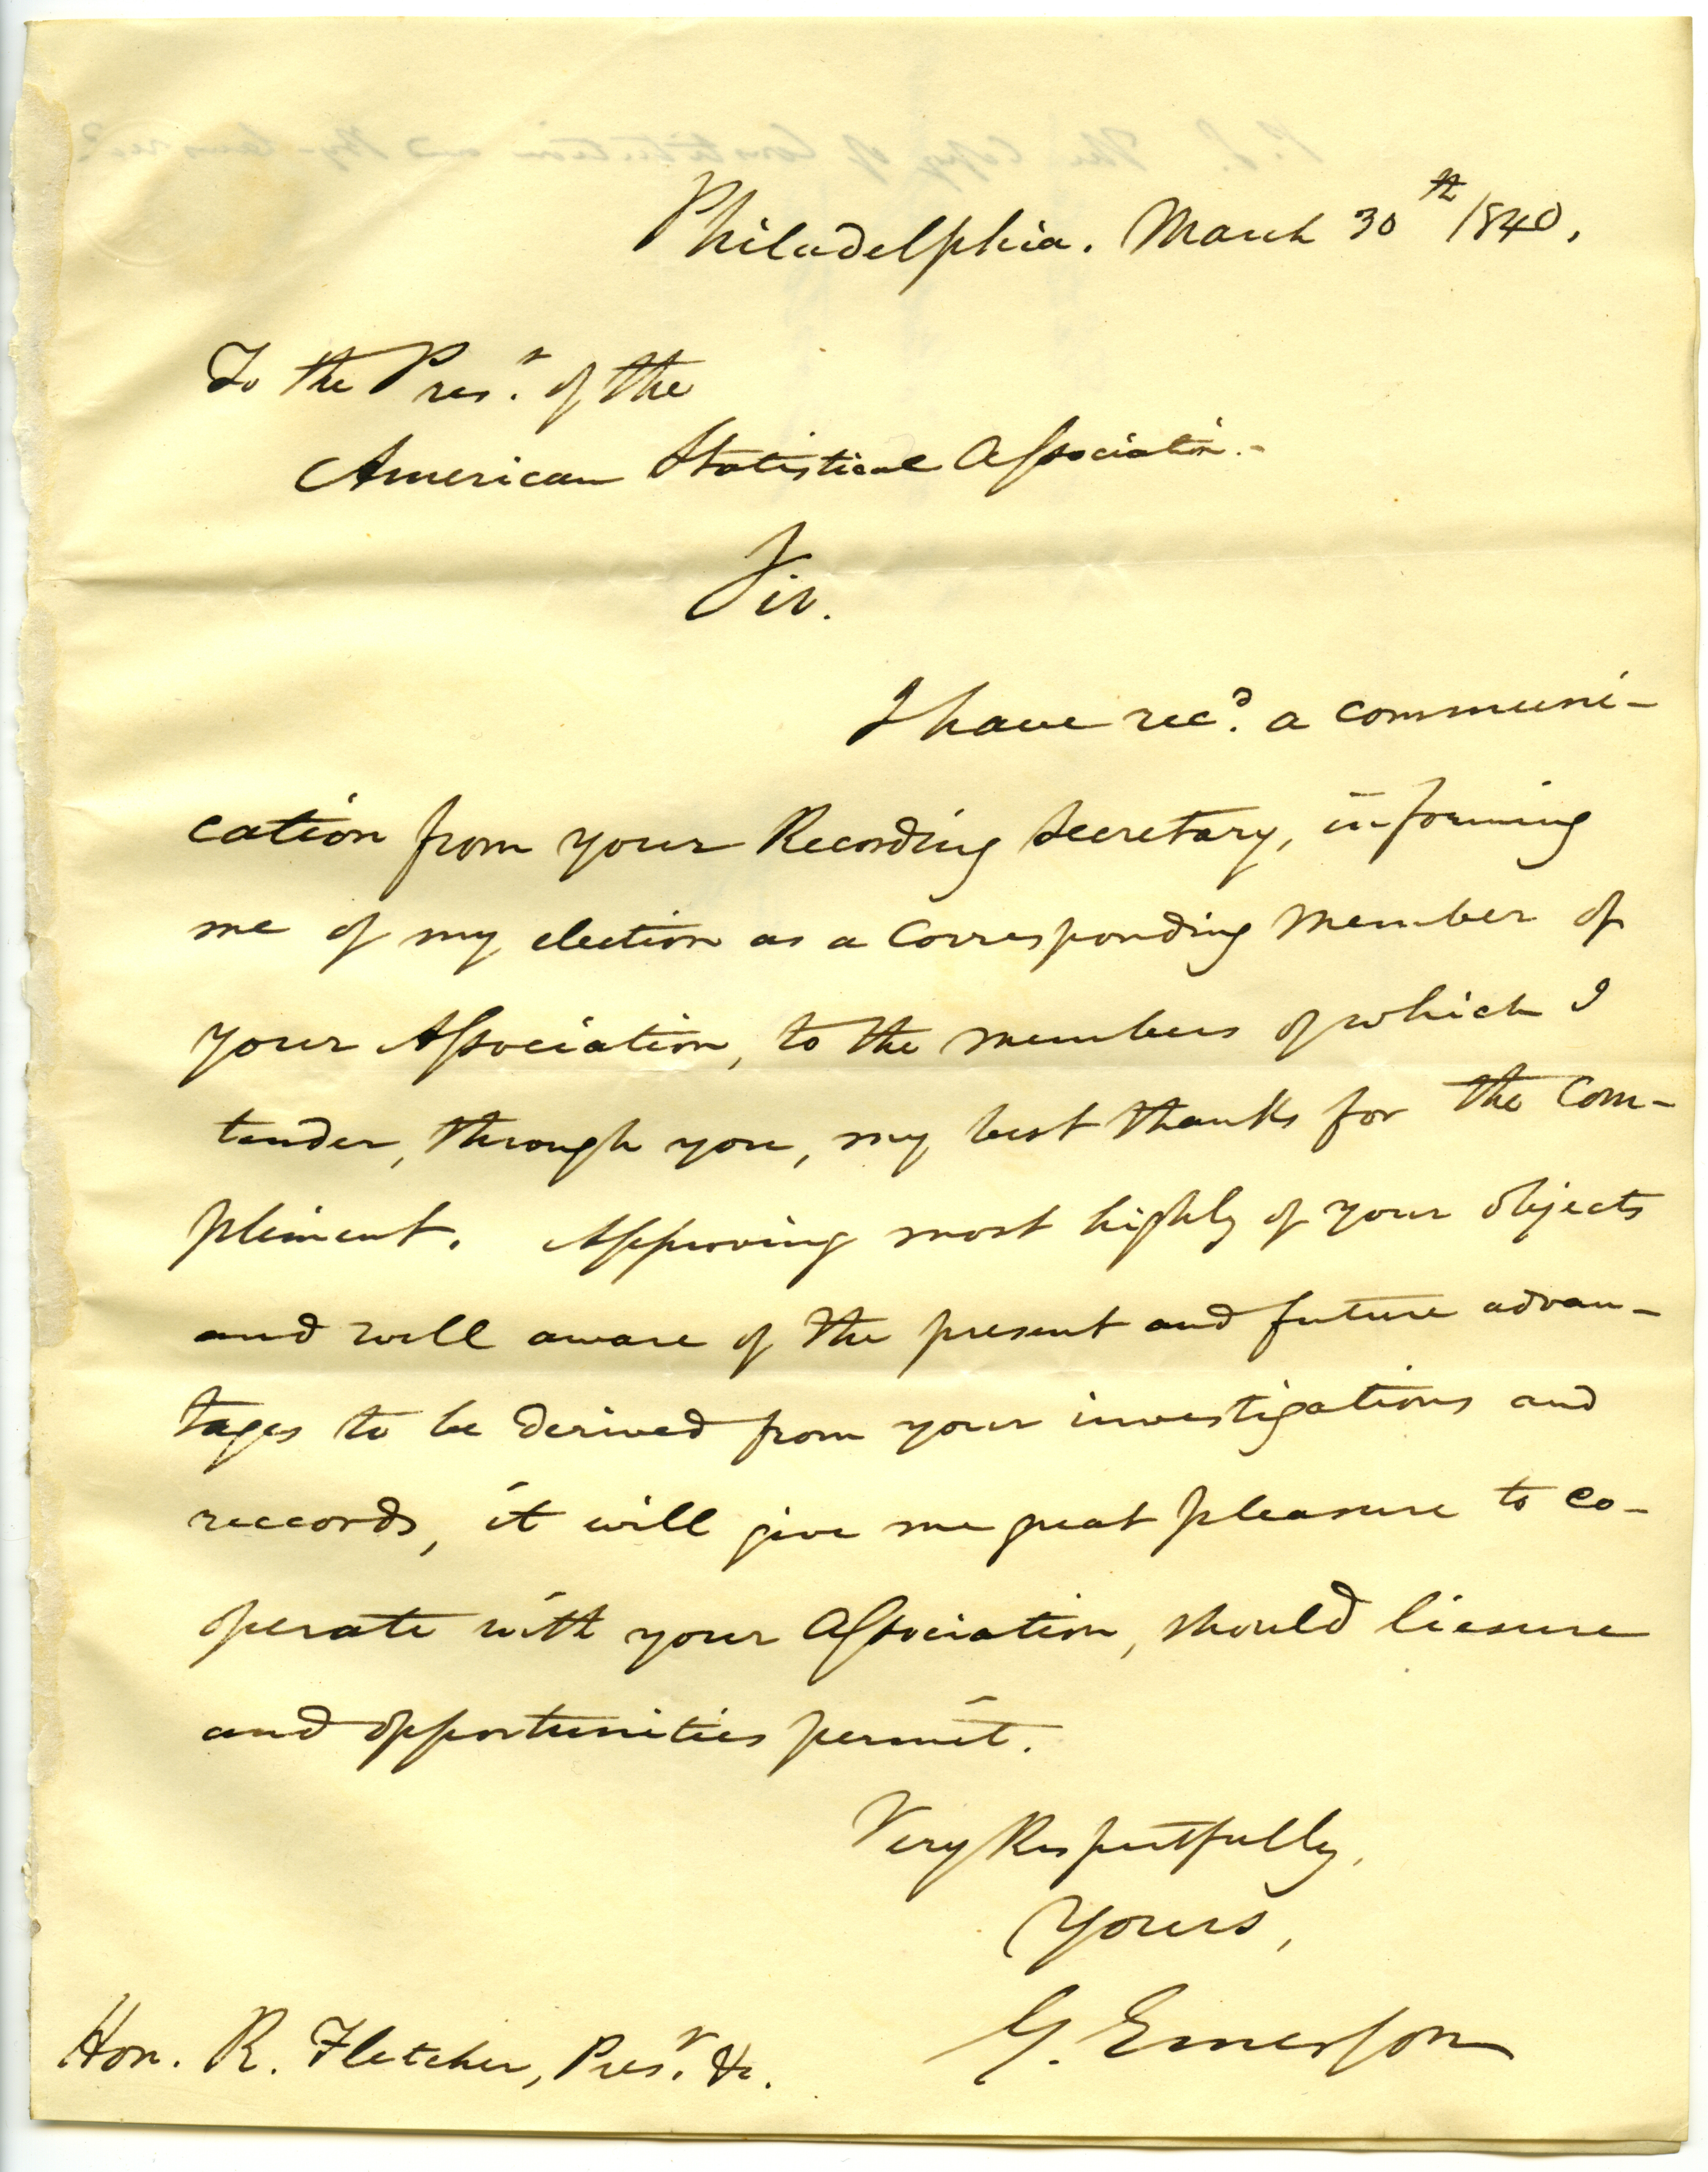 P.S. The Copy of Constitution and By-laws recd
Philadelphia. March 30th 1840.
To the Prest. of the
American Statistical Association.-
Sir.
I have recd. a communi-
cation from your Recording Secretary, informing
me of my election as a Corresponding Member of
your Association, to the members of which I
tender, through you, my best thanks for the Com-
pliment. Approving most highly of your objects
and well aware of the present and future advan-
tages to be derived from your investigations and
reccords, it will give me great pleasure to co-
operate with your Association, should liesure
and opportunities permit.
Very Respectfully,
Yours,
G. Emerson
Hon. R. Fletcher, Prest. &c.